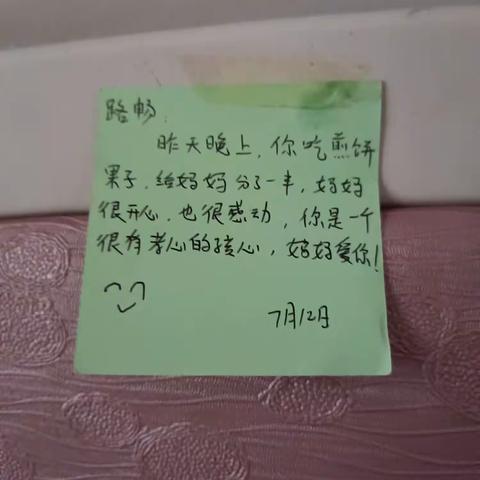 路畅:
昨天晚上,你吃煎饼
果子,给妈妈分了一半,妈妈
很开心,也很感动,你是一个
很有孝心的孩心,妈妈爱你!
7月12日